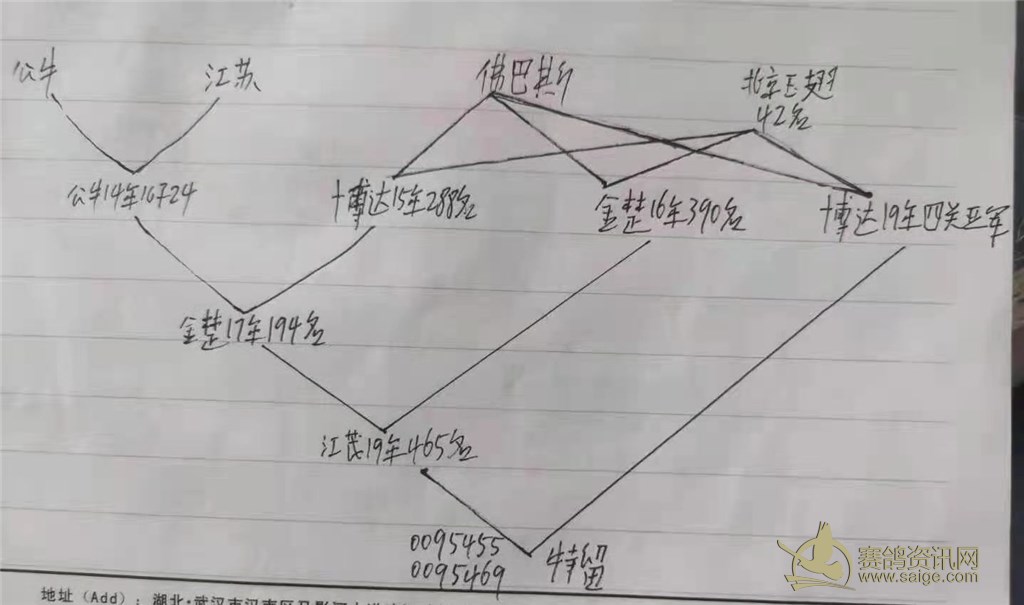 公牛
江苏
佛巴斯
北京巨翅
42名
公牛14年16子24
博达15年288名
金楚16年390名
博达19年四关亚军
金楚17年194名
江茂19年465名
0095455
0095469
特留
赛鸽资讯网
www.saige.com
地址（Add）：湖北·武汉市汉南区